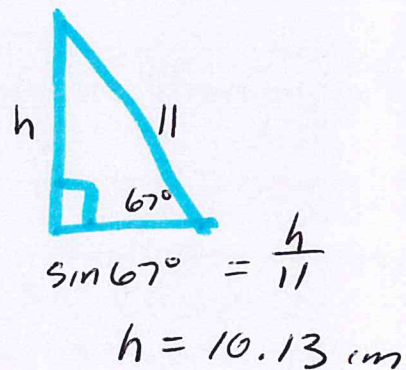 h
11
67°
sin 67° = h/11
h = 10.13 cm